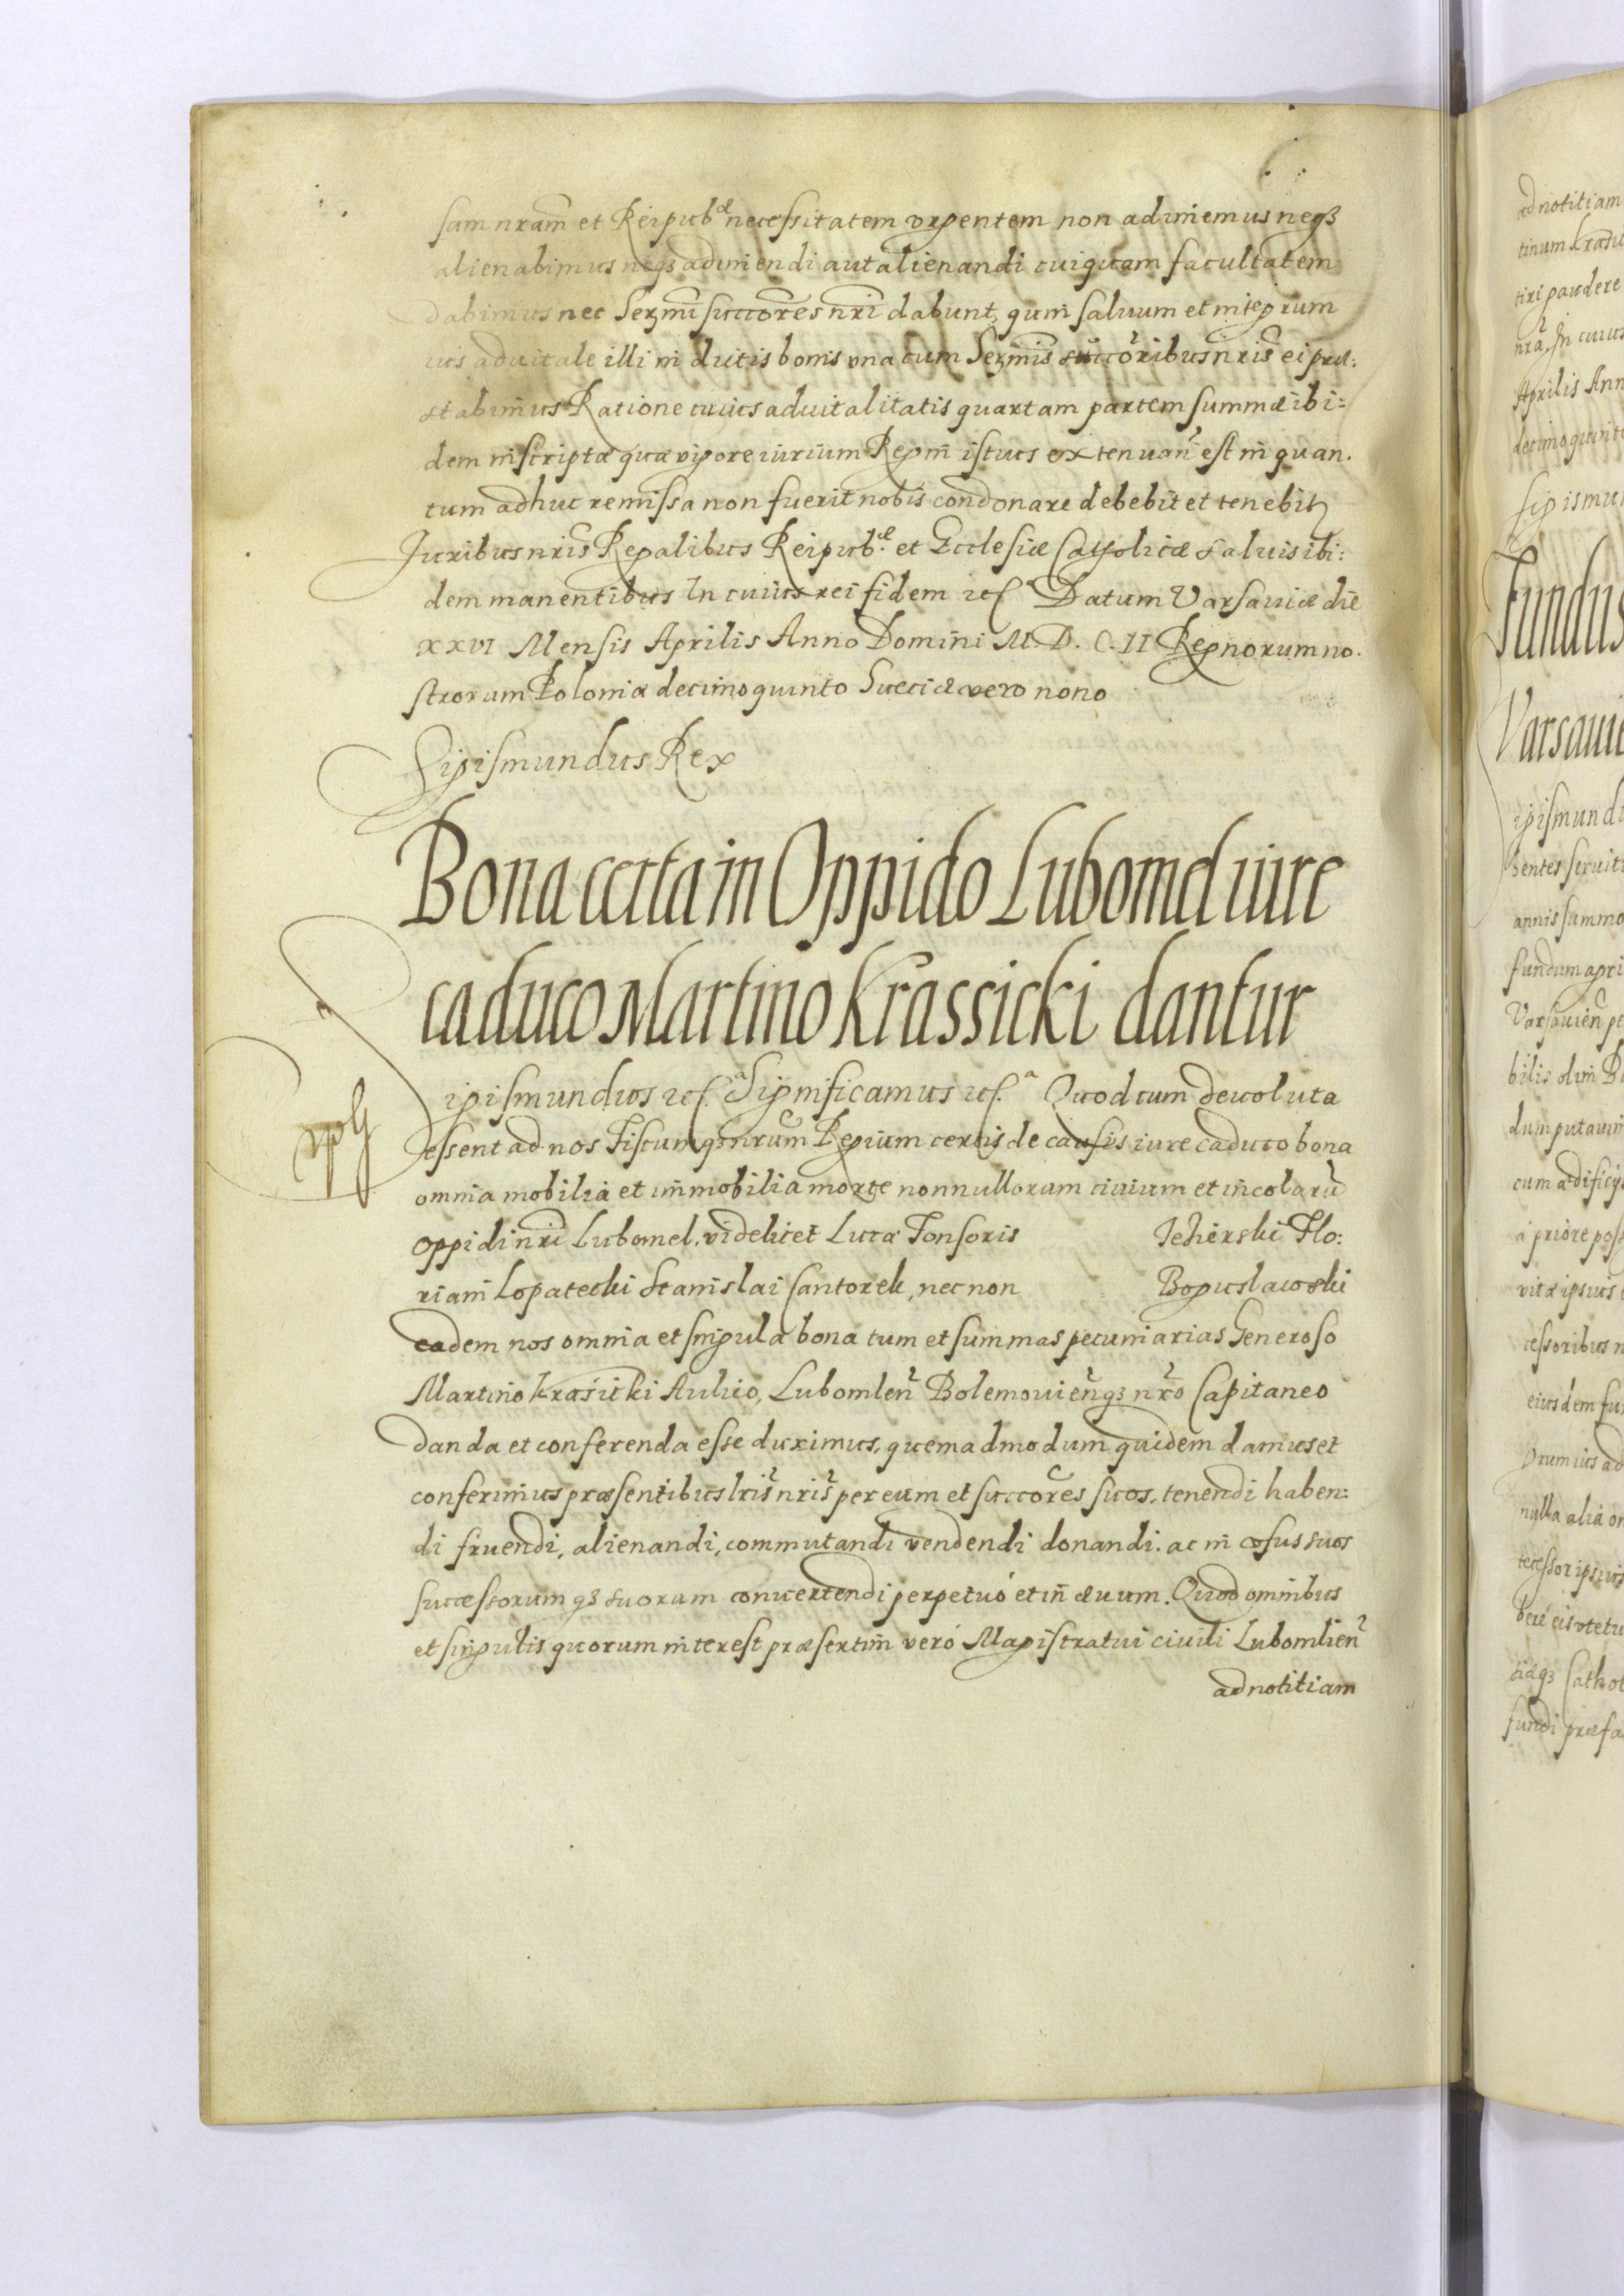 sam nram et Reipubæ necessitatem vrgentem non adimemus neqȝ
alienabimus neqȝ adimendi aut alienandi cuiquam facultatem
dabimus nec Serm̄i succores nri dabunt, quin saluum et integrum
ius aduitale illi in dictis bonis vna cum Serm̄is succoribus nris ei præ:
stabimus Ratione cuius aduitalitatis quartam partem summæ ibi=
dem inscriptæ quæ vigore iurium Regni istius extenuan̄ est in quan.
tum adhuc remissa non fuerit nobis condonare debebit et tenebit
Juribus nris Regalibus Reipub.æ et Ecclesiæ Catholicæ saluis ibi:
dem manentibus In cuius rei fidem etc.ª Datum Varsauiæ die
XXVI Mensis Aprilis Anno Domini M. D. C. II Regnorum no.
strorum Poloniæ decimoquinto Sueciæ vero nono
Sigismundus Rex
Bona certa in Oppido Lubomel iure
caduco Martino Krassicki dantur
igismundus etc.ª Significamus etc.ª Quod cum deuoluta
essent ad nos Fiscumqȝ nrum Regium certis de causis iure caduco bona
omnia mobilia et immobilia morte nonnullorum ciuium et incolarū
oppidi nri Lubomel. videlicet Lucæ Tonsoris Jehierski Flo:
riani Lopatecki Stanislai Cantorek, nec non Boguslawski
eadem nos omnia et singula bona tum et summas pecuniarias Generoso
Martino Krasicki Aulico, Lubomlen̄ Bolemouien̄qȝ nro Capitaneo
danda et conferenda esse duximus, quemadmodum quidem damus et
conferimus præsentibus lris nris per eum et succores suos, tenendi haben:
di fruendi, alienandi, commutandi vendendi donandi. ac in vsus suos
successorumqȝ suorum conuertendi perpetuó et in æuum. Quod omnibus
et singulis quorum interest præsertim veró Magistratui ciuili Lubomlien̄
ad notitiam
ad notitiam
tiri gaudere
Aprilis Ann
Sigismu
Fundus
Varsauie
igismundu
annis summo
Varsauien̄ pe
bilis olim
dum putauim
cum ædificijs
a priore poss
vitæ ipsius
cessoribus n
eiusdem fu
nulla alia
fundi præfa